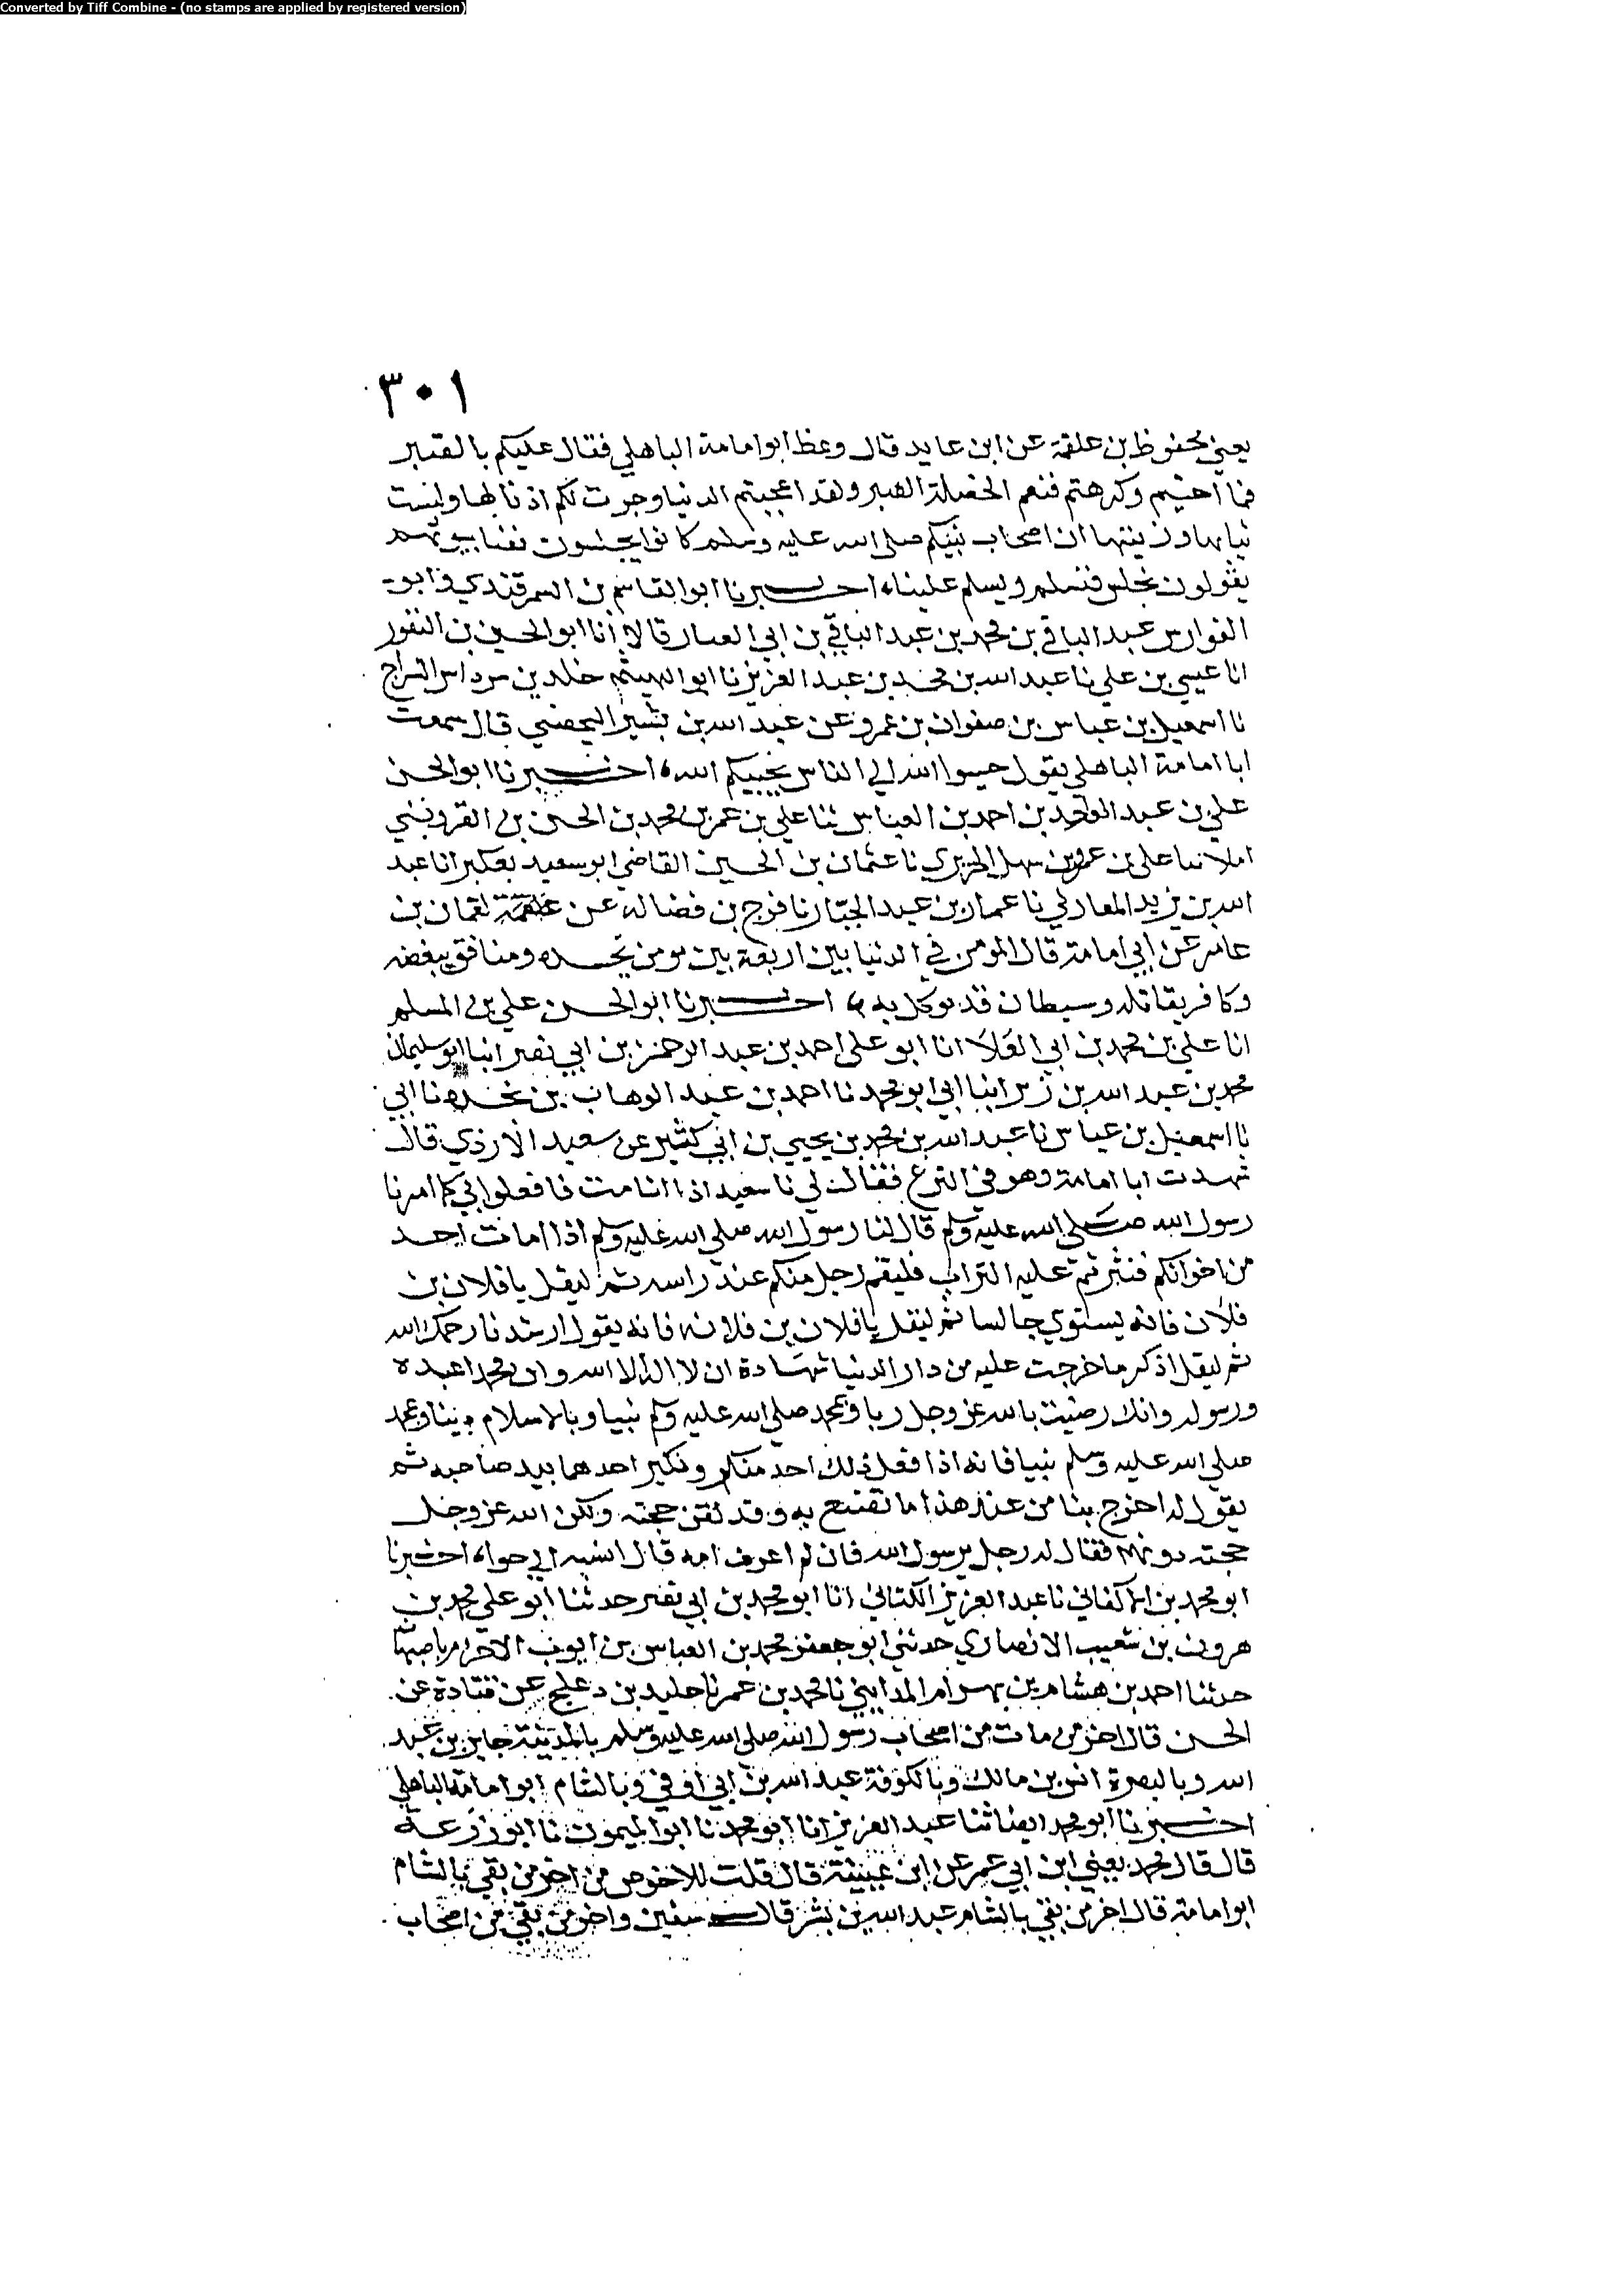 Converted by Tiff Combine - (no stamps are applied by registered version)
٣٠١
يعني محفوظ بن علقمة عن ابن عايد قال وعظ ابو امامة الباهلي فقال عليكم بالصبر
فما احببتم وكرهتم فنعم الخصلة الصبر ولقد اعجبتم الدنيا وجرت لكم اذنابها ولبست
ثيابها وزينتها ان اصحاب نبيكم صلى الله عليه وسلم كانوا يجلسون بفنا بيوتهم
يقولون نجلس فنسلم ويسلم علينا، اخبرنا ابو القاسم بن السمرقندي وابو
الفوارس عبد الباقي بن محمد بن عبد الباقي بن ابي العبار قالا أنا ابو الحسين بن النقور
انا عيسي بن علي نا عبد الله بن محمد بن عبد العزيز نا ابو الهيثم خلد بن مرداس السراج
نا اسمعيل بن عباس بن صفوان بن عمرو عن عبد الله بن بشير اليحصبي قال سمعت
ابا امامة الباهلي يقول حببوا الله الي الناس يحببكم الله، اخبرنا ابو الحسن
علي بن عبد الواحد بن احمد بن العباس ثنا علي بن عمر بن محمد بن الحسن بن القزويني
املا نا علي بن عمرو بن سهل الحريري نا عثمان بن الحسين القاضي ابو سعيد بعكبرا نا عبد
الله بن يزيد نا عمار بن عبد الجبار نا فرج بن فضالة عن علقمة لقمان بن
عامر عن ابي امامة قال المومن في الدنيا بين اربعة بين مومن يحسده ومنافق يبغضه
وكافر يقاتله وسيطان قد يوكل به، اخبرنا ابو الحسن علي بن المسلم
انا علي بن محمد بن ابي العلا انا ابو علي احمد بن عبد الرحمن بن ابي نصر انبا ابو سليمان
محمد بن عبد الله بن زبر انبا ابي ابو محمد نا احمد بن عبد الوهاب بن نجده نا ابي
نا اسمعيل بن عياس نا عبد الله بن محمد بن يحيي بن ابي كثير عن سعيد الازدي قال
شهدت ابا امامة وهو في النزع فقال لي يا سعيد اذا انا مت فافعلوا بي كما امرنا
رسول الله صلى الله عليه وسلم قال لنا رسول الله صلى الله عليه وسلم اذا مات احد
من اخوانكم فنثرتم عليه التراب فليقم رجل منكم عند راسه ثم ليقل يا فلان بن
فلان فانه يستوي جالسا ثم ليقل يا فلان بن فلانه فانه يقول ارشدنا رحمك الله
ثم ليقل اذكر ما خرجت عليه من دار الدنيا شهادة ان لا اله الا الله وان محمدا عبده
ورسوله وانك رضيت بالله عز وجل ربا وبمحمد صلى الله عليه وسلم نبيا وبالاسلام دينا وبمحمد
صلى الله عليه وسلم نبيا فانه اذا فعل ذلك اخذ منكر ونكير احدهما بيد صاحبه ثم
يقول له اخرج بنا من عند هذا ما نصنع به وقد لقن حجته ولكن الله عز وجل
حجته دونهم فقال له رجل يرسول الله فان لم اعرف امه قال انسبه الي حواء، اخبرنا
ابو محمد بن الاكفاني نا عبد العزيز الكتاني انا ابو محمد بن ابي نصر حدثنا ابو علي محمد بن
هرون بن شعيب الانصاري حدثني ابو جعفر محمد بن العباس بن ايوب الاخرم باصبهان
حدثنا احمد بن هشام بن بهرام المدايني نا محمد بن عمر نا خليد بن دعلج عن قتادة عن
الحسن قال اخر من مات من اصحاب رسول الله صلى الله عليه وسلم بالمدينة جابر بن عبد
الله وبالبصرة انس بن مالك وبالكوفة عبد الله بن ابي اوفي وبالشام ابو امامة الباهلي
اخبرنا ابو محمد ايضا ثنا عبد العزيز انا ابو محمد نا ابو الميمون نا ابو زرعة
قال قال محمد يعني ابن ابي عمر عن ابن عيينة قال قلت للاحوص من اخر من بقي بالشام
ابو امامة قال اخر من بقي بالشام عبد الله بن بشر قال سفين واخر من بقي من اصحاب